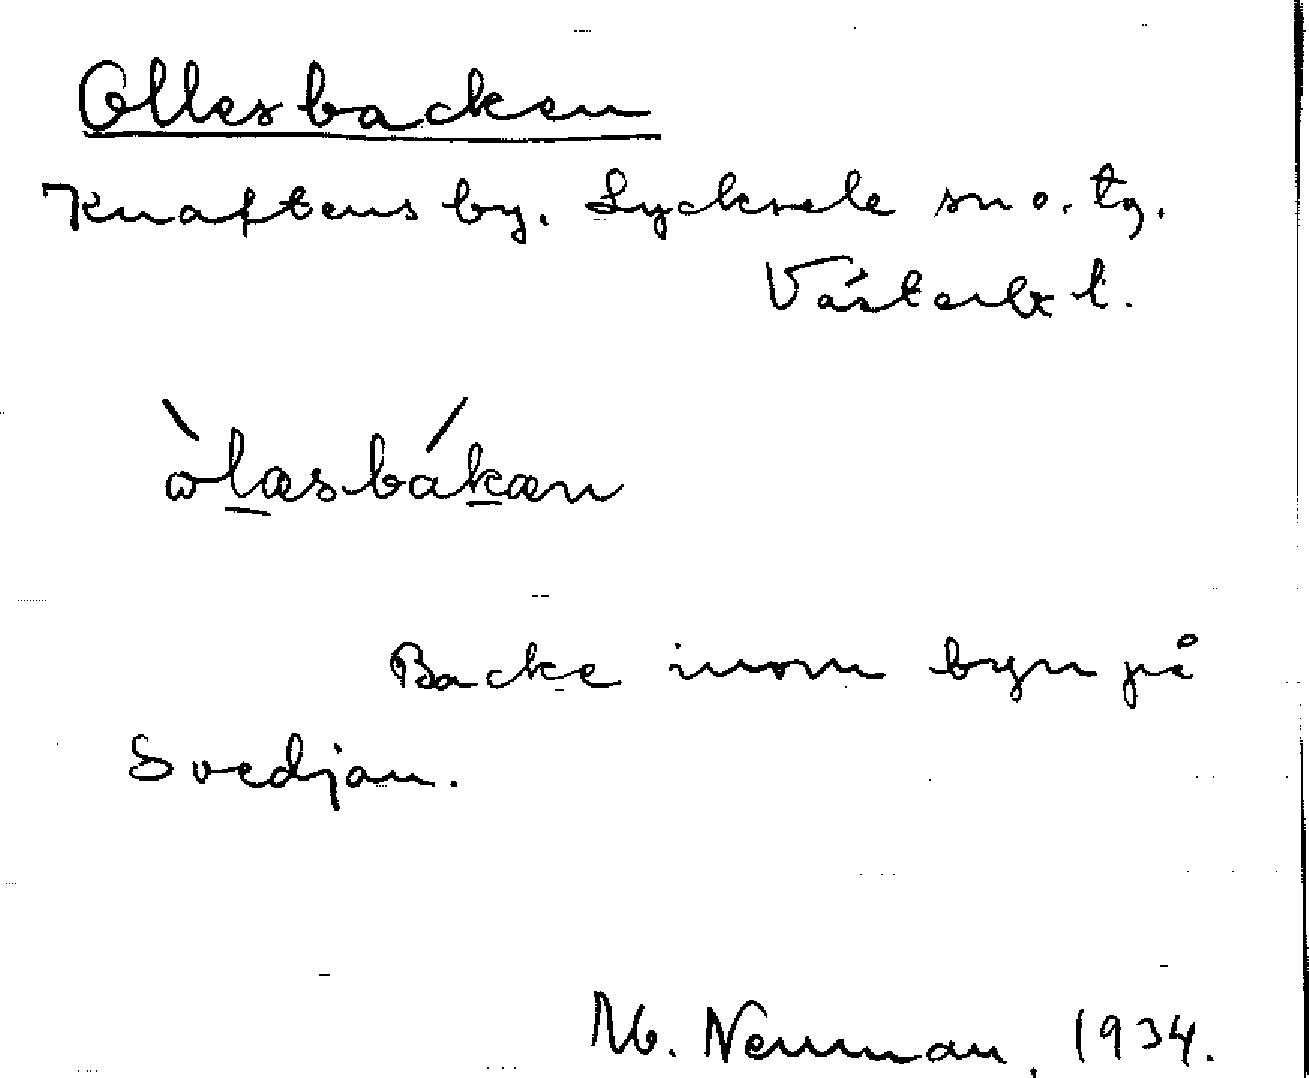 Ollesbacken
Knaftens by. Lycksele sn o. tg.
Västerb. l.
òlæsbákæn
Backe inom byn på
Svedjan.
M. Neuman, 1934.